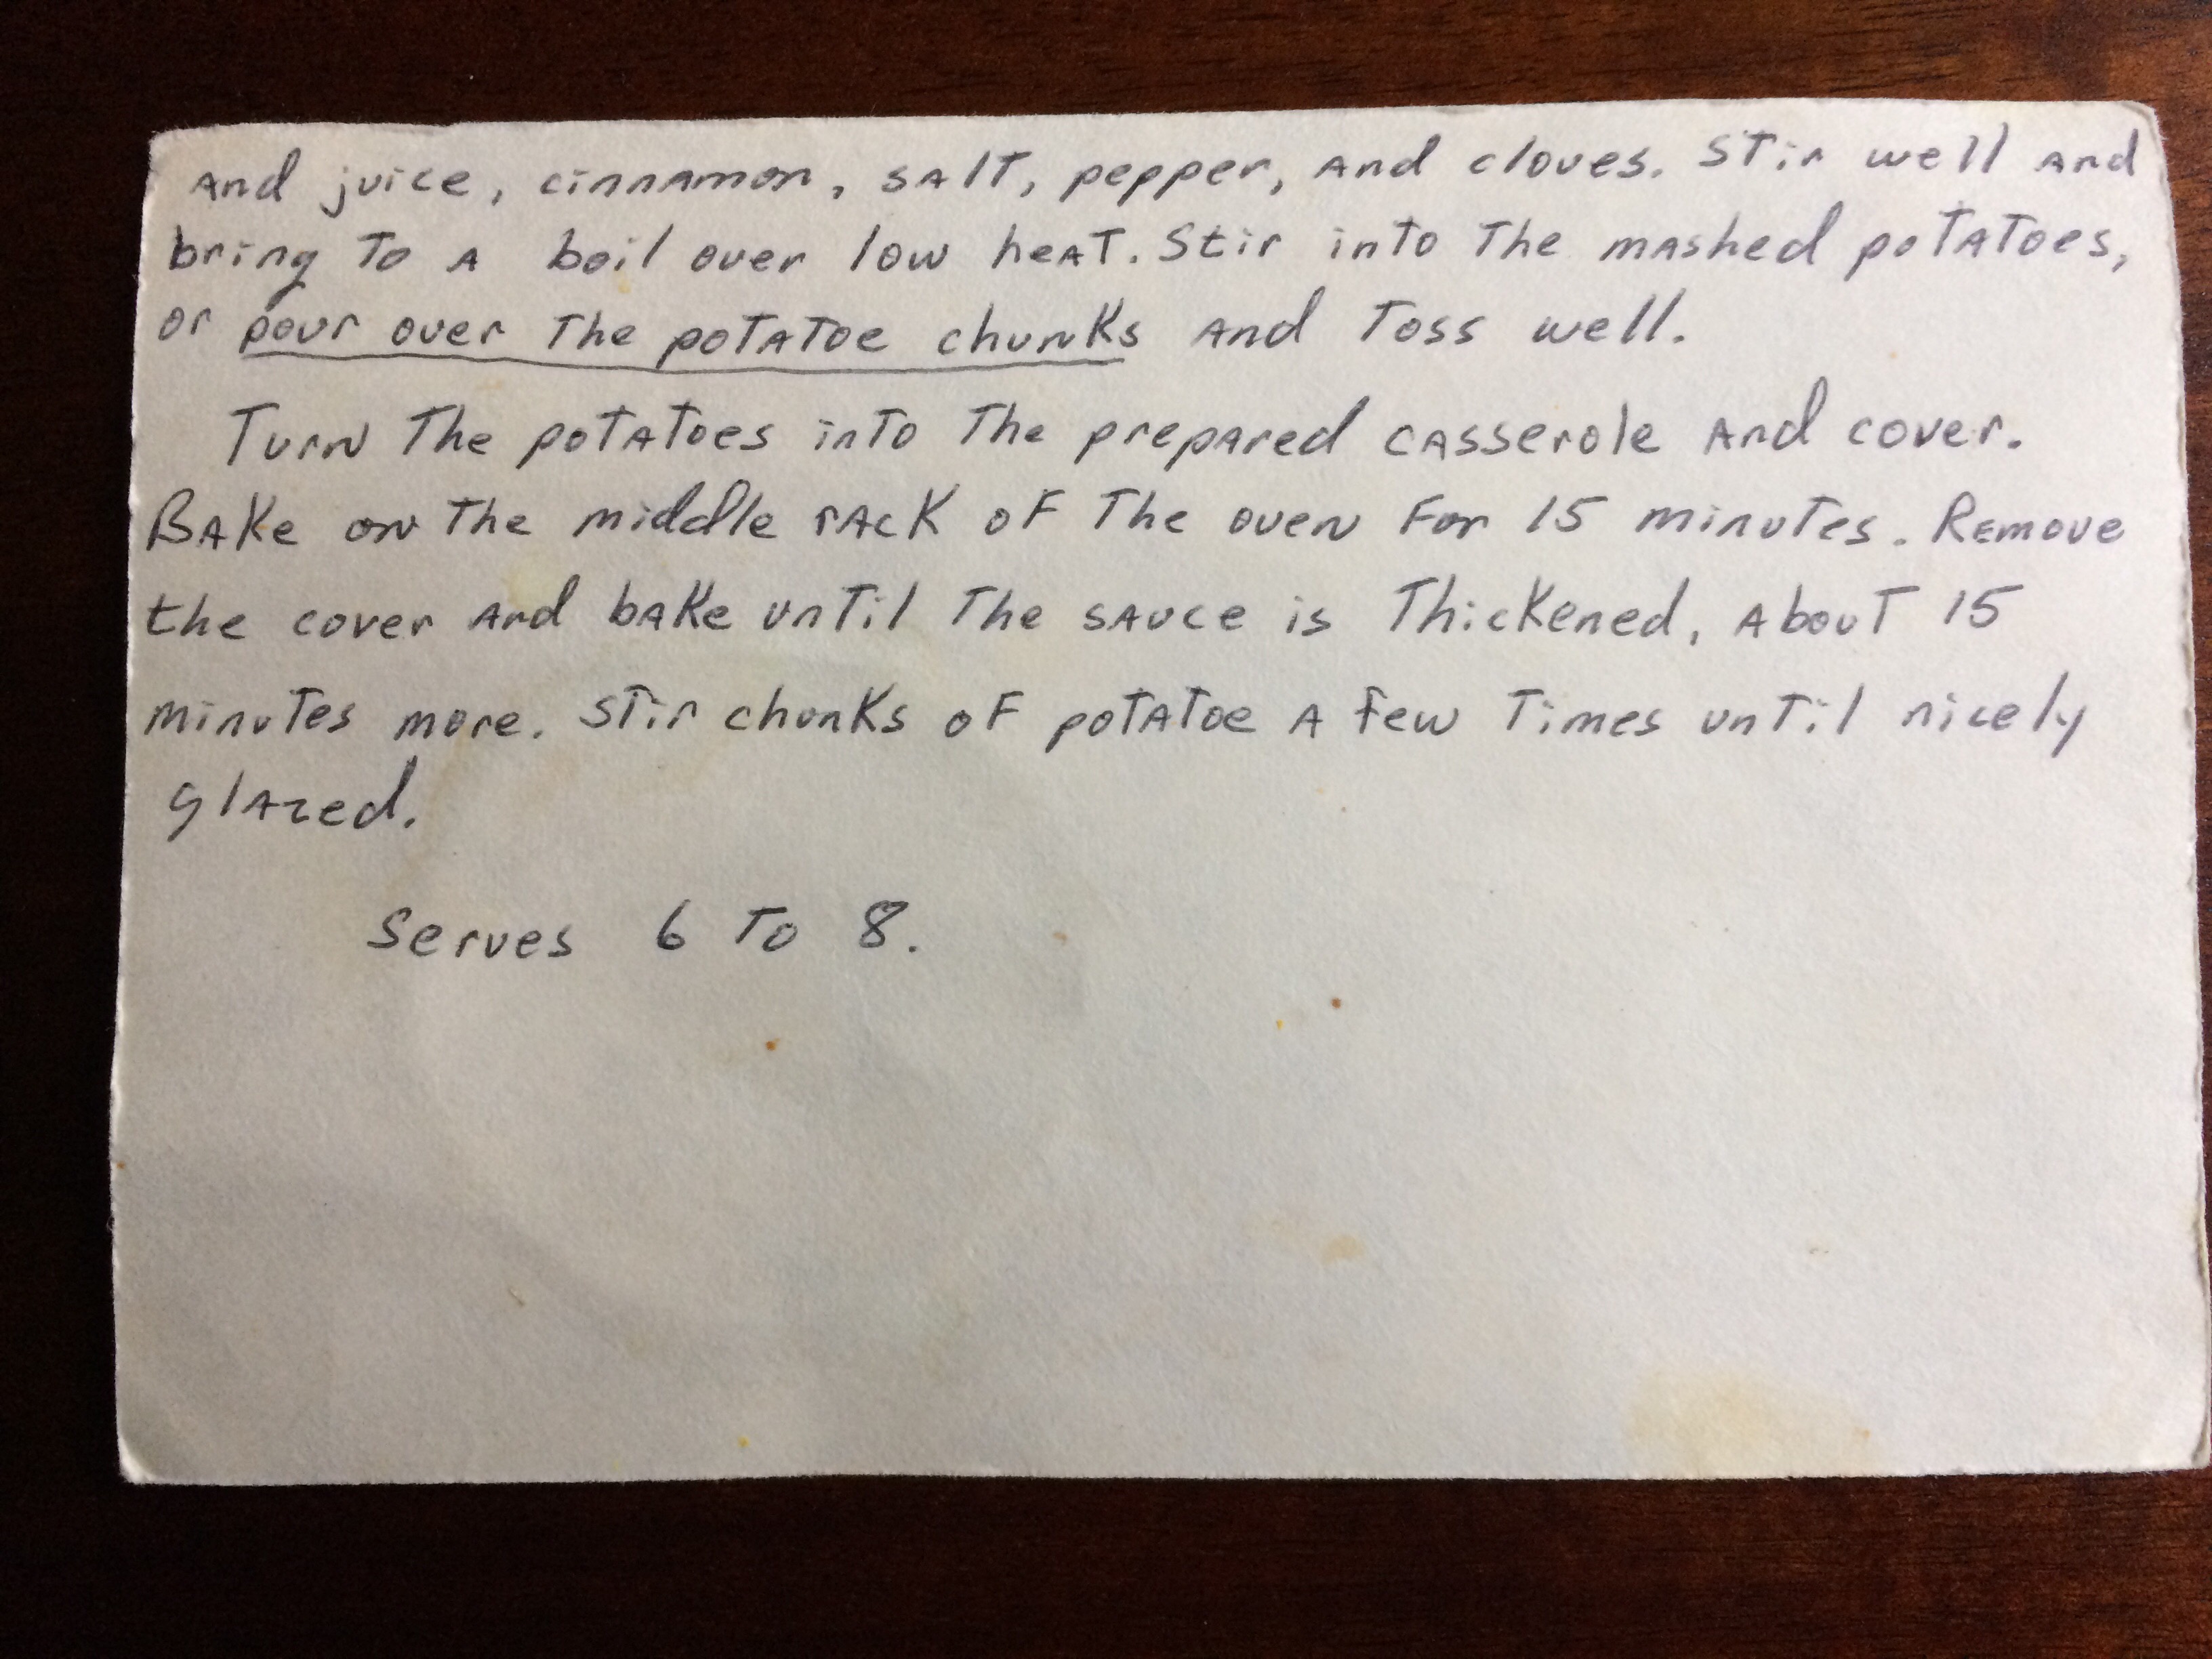 And juice, cinnamon, salt, pepper, and cloves. Stir well and
bring to a boil over low heat. Stir into the mashed potatoes,
or pour over the potatoe chunks and toss well.
Turn the potatoes into the prepared casserole and cover.
Bake on the middle rack of the oven for 15 minutes. Remove
the cover and bake until the sauce is thickened, about 15
minutes more. Stir chunks of potatoe a few times until nicely
glazed.
Serves 6 to 8.